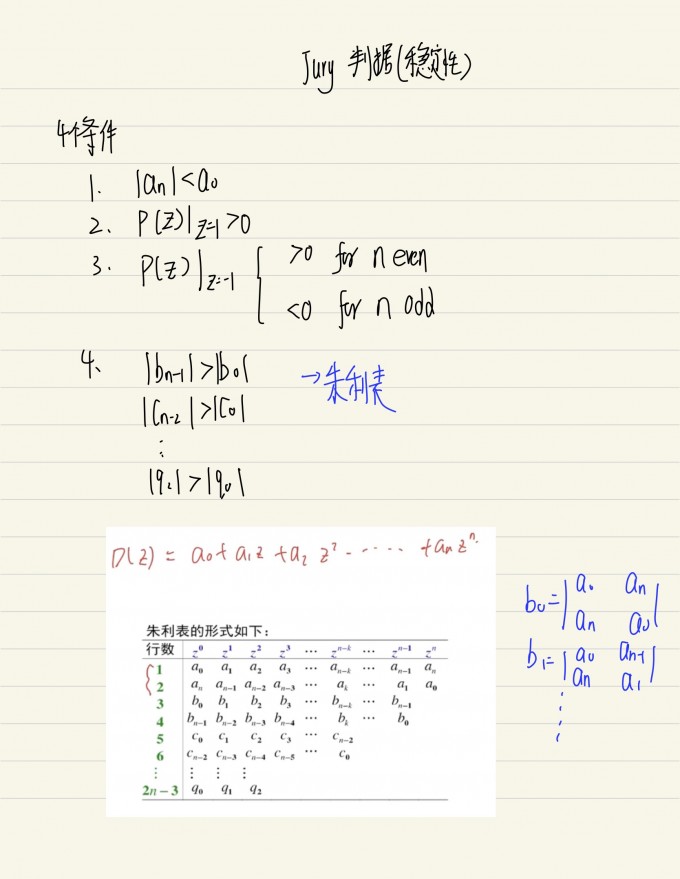 Jury 判据(稳定性)
4个条件
1. |an|<a0
2. P(Z)|Z=1>0
3. P(Z)|Z=-1 { >0 for n even
<0 for n odd
4、 |bn-1|>|b0| →朱利表
|Cn-2|>|C0|
⋮
|q2|>|q0|
D(z) = a0+a1z+a2 z²-····· +an zⁿ.
朱利表的形式如下：
行数 z⁰ z¹ z² z³ ··· zⁿ⁻ᵏ ··· zⁿ⁻¹ zⁿ
1 a0 a1 a2 a3 ··· an-k ··· an-1 an
2 an an-1 an-2 an-3 ··· ak ··· a1 a0
3 b0 b1 b2 b3 ··· bn-k ··· bn-1
4 bn-1 bn-2 bn-3 bn-4 ··· bk ··· b0
5 c0 c1 c2 c3 ··· cn-2
6 cn-2 cn-3 cn-4 cn-5 ··· c0
⋮ ⋮ ⋮ ⋮
2n-3 q0 q1 q2
b0=| a0 an
an a0 |
b1=| a0 an-1
an a1 |
⋮